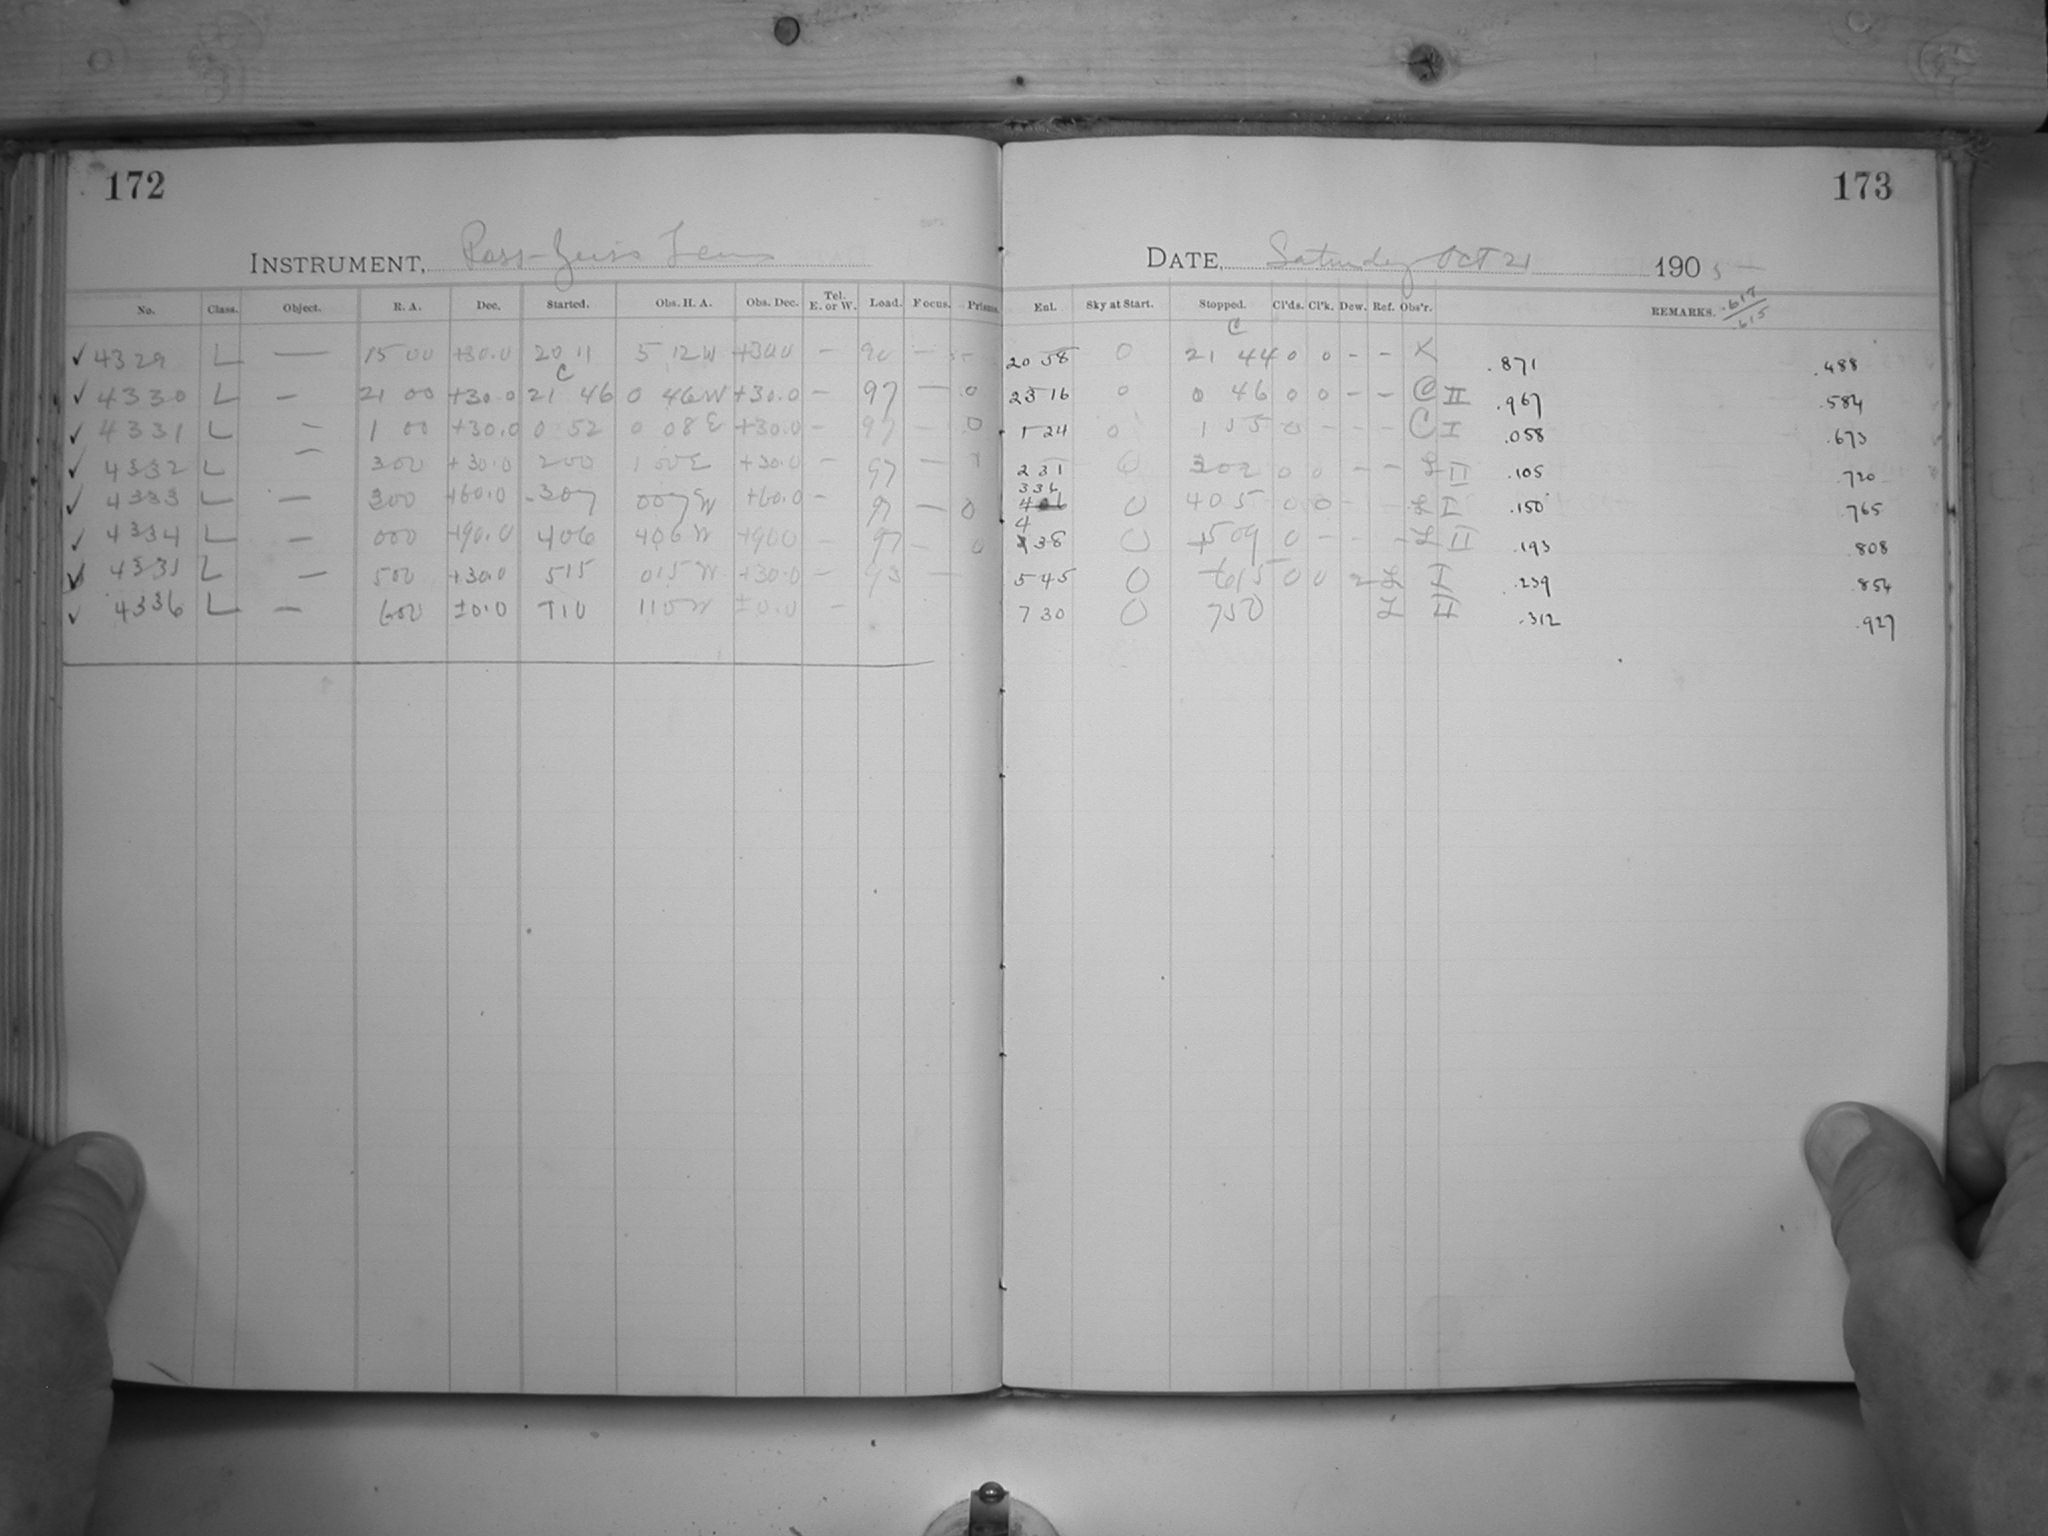 172
173
INSTRUMENT, Ross-Zeiss Lens
DATE, Saturday Oct 21 1905
No. Class. Object. R. A. Dec. Started. Obs. H. A. Obs. Dec. Tel. E. or W. Load. Focus. Prisms. Ext. Sky at Start. Stopped. Cl'ds. Cl'k. Dew. Ref. Obs'r. REMARKS. .617/.615
✓ 4329 L — 15 00 +30.0 20 11 5 12 W +30.0 — 90 — 20 58 0 21 44 0 0 - - X .871 .488
✓ 4330 L — 21 00 +30.0 21 46 0 46 W +30.0 — 97 — 0 23 16 0 0 46 0 0 - - C II .967 .584
✓ 4331 L — 1 00 +30.0 0 52 0 08 E +30.0 — 97 — 0 1 24 0 1 55 0 - - - C I .058 .673
✓ 4332 L — 3 00 +30.0 2 00 1 00 E +30.0 — 97 — 2 31 0 3 02 0 0 - - L II .105 .720
✓ 4333 L — 3 00 +60.0 3 07 0 07 W +60.0 — 97 — 0 3 36 0 4 05 0 0 - - L I .150 .765
✓ 4334 L — 0 00 +90.0 4 06 4 06 W +90.0 — 97 — 0 4 38 0 5 09 0 - - - L II .193 .808
✓ 4335 L — 5 00 +30.0 5 15 0 15 W +30.0 — 93 — 5 45 0 6 15 0 0 2 L I .239 .854
✓ 4336 L — 6 00 ±0.0 7 10 1 10 W ±0.0 — 7 30 0 7 50 L II .312 .927